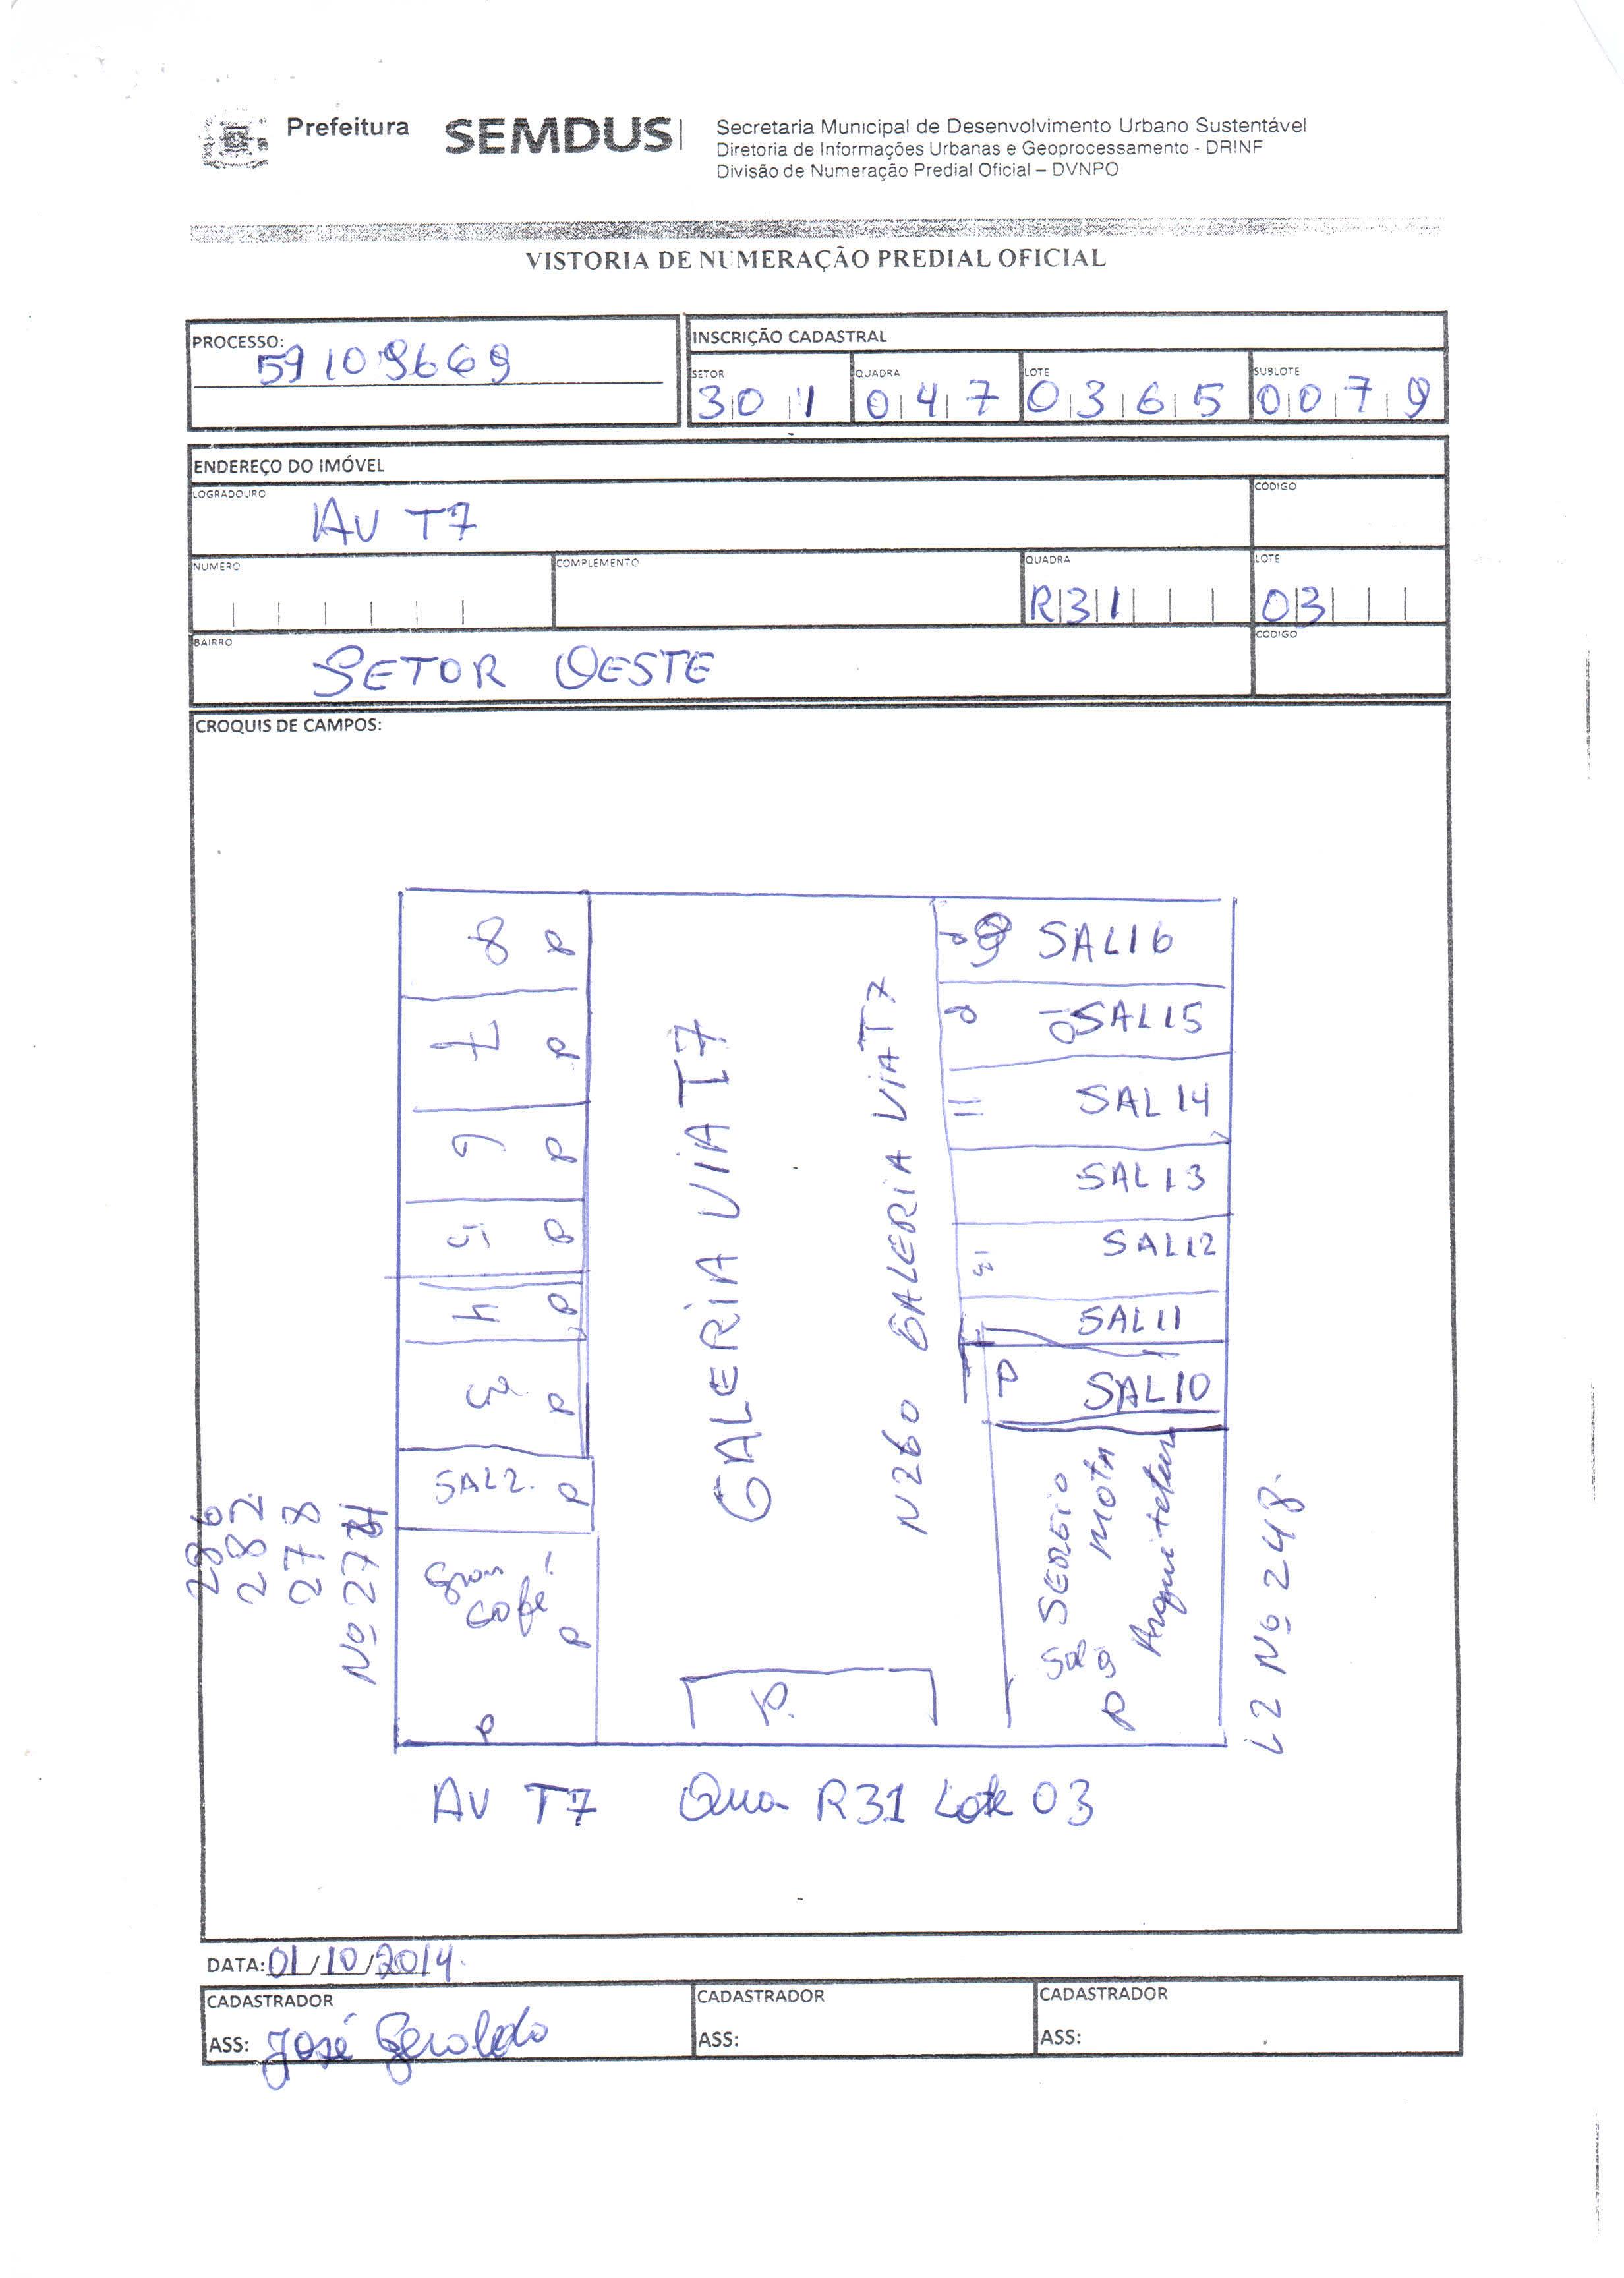 Prefeitura SEMDUS
Secretaria Municipal de Desenvolvimento Urbano Sustentável
Diretoria de Informações Urbanas e Geoprocessamento - DRINF
Divisão de Numeração Predial Oficial – DVNPO
VISTORIA DE NUMERAÇÃO PREDIAL OFICIAL
PROCESSO: 59109669
INSCRIÇÃO CADASTRAL
SETOR 301 QUADRA 047 LOTE 0365 SUBLOTE 0079
ENDEREÇO DO IMÓVEL
LOGRADOURO AV T7 CÓDIGO
NUMERO COMPLEMENTO QUADRA R31 LOTE 03
BAIRRO SETOR OESTE CODIGO
CROQUIS DE CAMPOS:
8 P
7 P
6 P
5 P
4 P
3 P
SAL 2. P
Gran Café! P
P
286
282
278
Nº 274
GALERIA VIA T7
N 260 GALERIA VIA T7
P.
P SAL 16
P 10 SAL 15
11 SAL 14
SAL 13
13 SAL 12
SAL 11
P SAL 10
SERGIO
Mota
Arquitetura
Sal 9
P
L2 Nº 248.
AV T7 Qua R31 Lote 03
DATA: 01/10/2014.
CADASTRADOR CADASTRADOR CADASTRADOR
ASS: José Geraldo ASS: ASS: